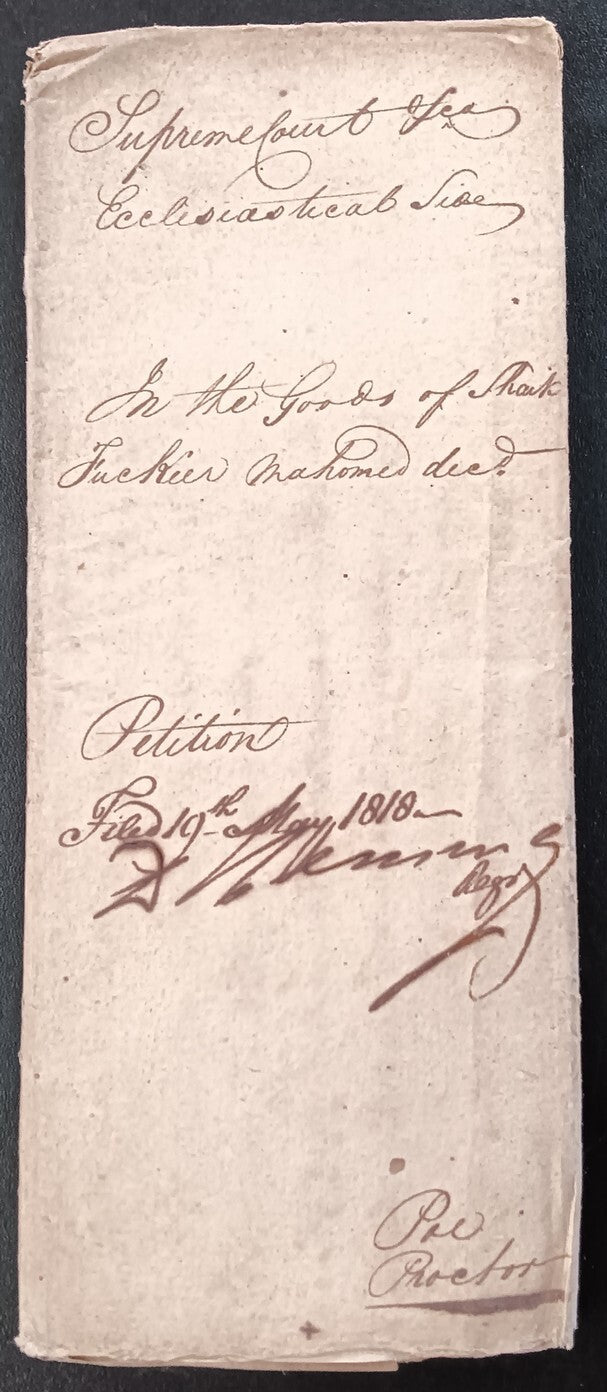 Supreme Court &ca
Ecclesiastical Side
In the Goods of Shaik
Fuckier Mahomed decd.
Petition
Filed 19th May 1818
Regr
Poe
Proctor